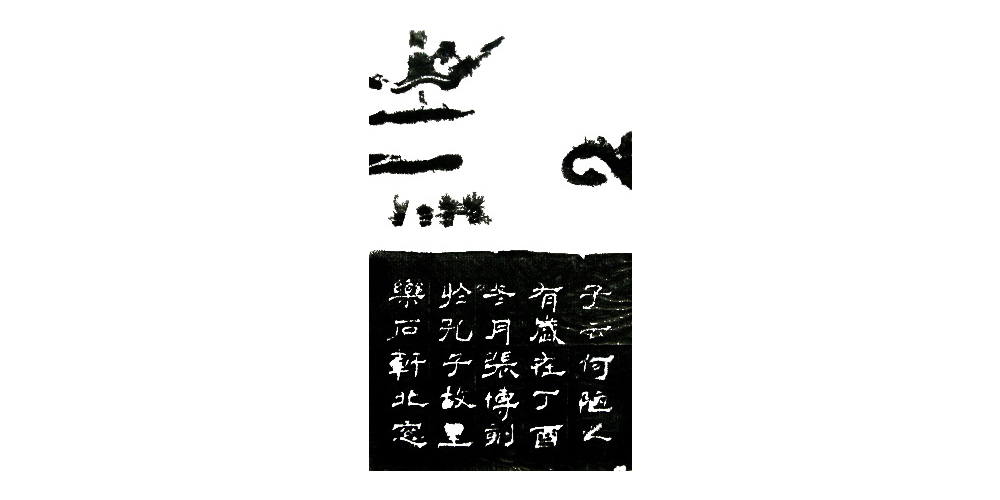 子云何陋之
有歲在丁酉
冬月張傅刻
於孔子故里
樂石軒北窓